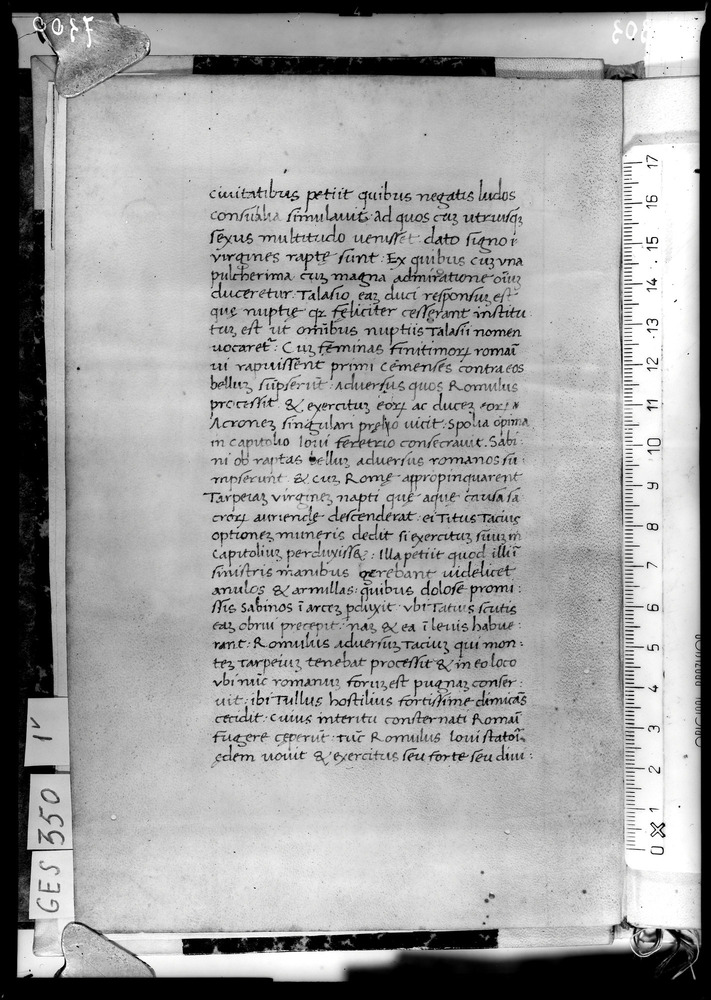 7300
803
ciuitatibus petiit quibus negatis ludos
consualia simulauit: ad quos cuʒ utriusqʒ
sexus multitudo uenisset dato signo :
virgines rapte sunt: Ex quibus cuʒ vna
pulcherima cuʒ magna admiratione oīuʒ
duceretur. Talasio eaʒ duci responsuʒ est
que nuptie qꝛ feliciter cesserant institu
tuʒ est ut omībus nuptiis Talasii nomen
vocaretᷣ: Cuʒ feminas finitimoꝝ romaī
ui rapuissent primi Cemenses contra eos
belluʒ supserūt: Aduersus quos Romulus
processit & exercituʒ eoꝝ ac duceʒ eoꝝ
Acroneʒ singulari prelio uicit: Spolia opima
in capitolio Ioui feretrio consecrauit. Sabi:
ni ob raptas belluʒ aduersus romanos su
mpserunt & cuʒ Rome appropinquarent
Tarpeiaʒ virgineʒ napti que aque causa sa
croꝝ auriende descenderat: ei Titus Tacius
optioneʒ muneris dedit si exercituʒ suuʒ in
Capitoliuʒ perduxisset: Illa petiit quod illi ī
sinistris manibus gerebant uidelicet
anulos & armillas: quibus dolose promi:
ssis Sabinos ī arceʒ pduxit vbi Tatius scutis
eaʒ obrui precepit: naʒ & ea ī leuis habue:
rant: Romulus aduersuʒ Taciuʒ qui mon:
teʒ Tarpeiuʒ tenebat processit & in eo loco
vbi nūc romanuʒ foruʒ est pugnaʒ conser:
uit: ibi Tullus hostilius fortissime dimicās
cecidit: Cuius interitu consternati Romaī
fugere ceperūt: tūc Romulus Ioui statori
edem uouit & exercitus seu forte seu diui:
1ᵛ
GES 350
0 1 2 3 4 5 6 7 8 9 10 11 12 13 14 15 16 17